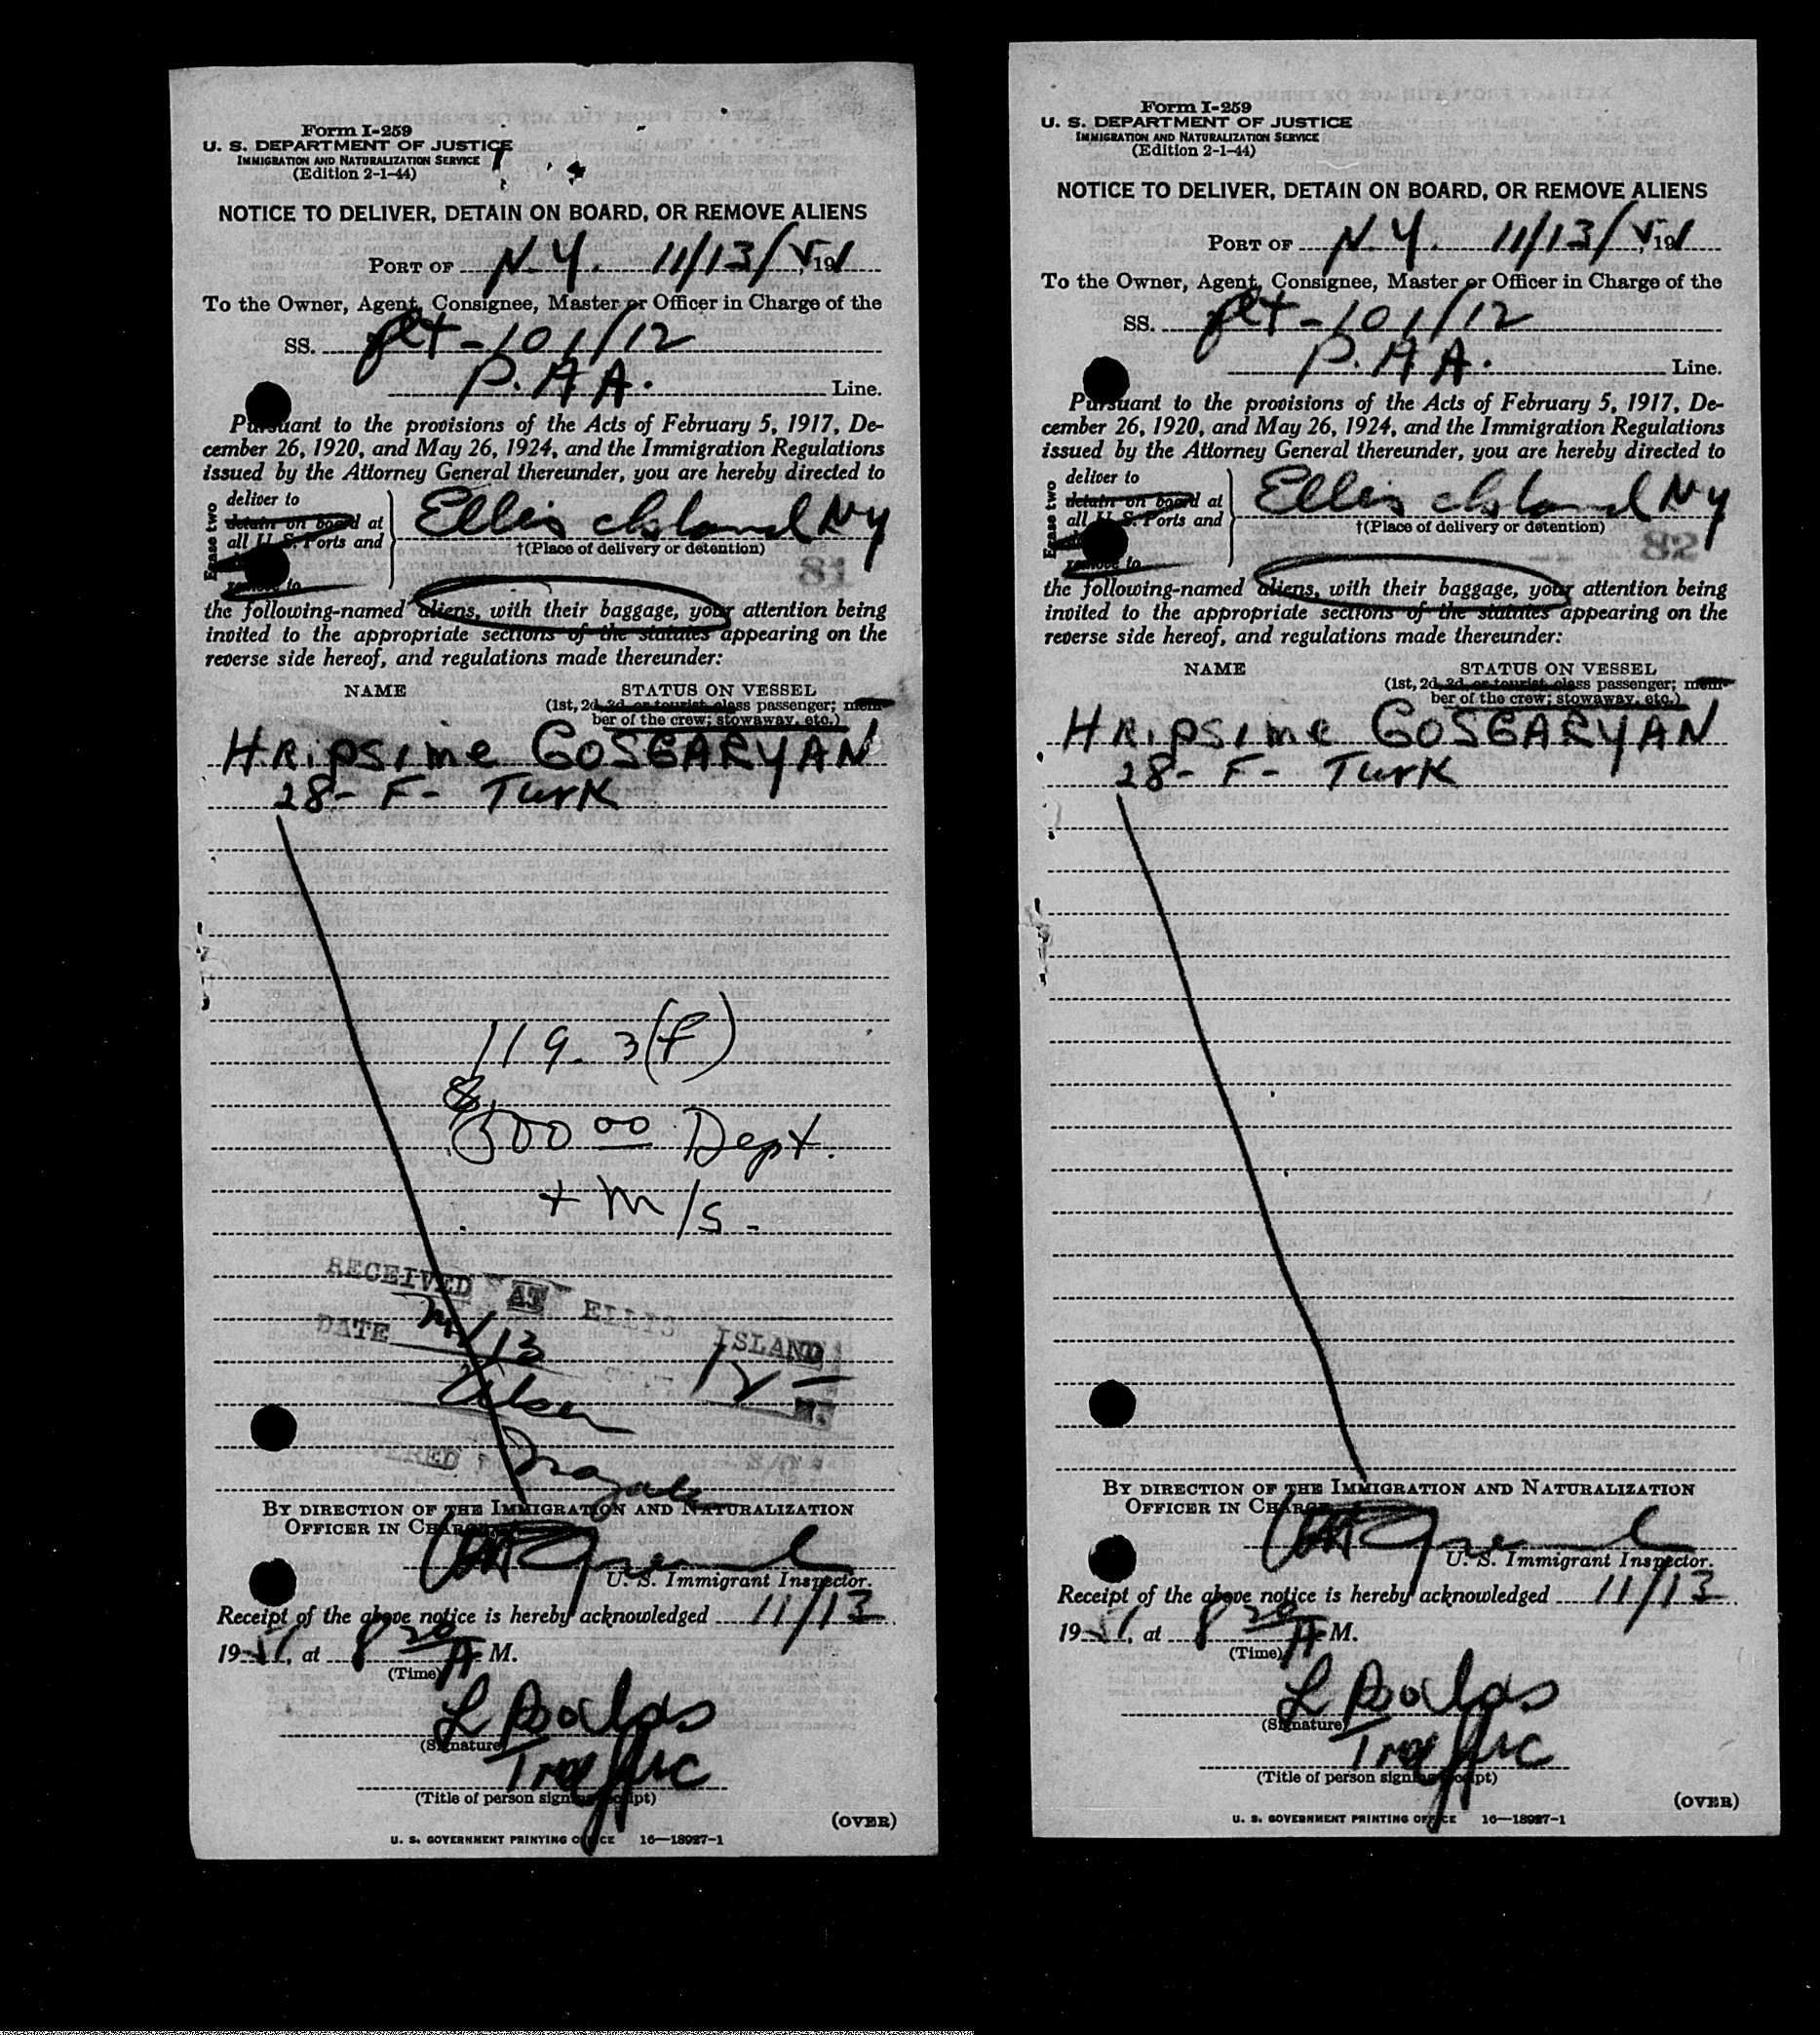 Form I-259
U. S. DEPARTMENT OF JUSTICE
IMMIGRATION AND NATURALIZATION SERVICE
(Edition 2-1-44)
NOTICE TO DELIVER, DETAIN ON BOARD, OR REMOVE ALIENS
PORT OF N.Y. 11/13/51, 19
To the Owner, Agent, Consignee, Master or Officer in Charge of the
SS. flt-101/12
P.A.A. Line.
Pursuant to the provisions of the Acts of February 5, 1917, De-
cember 26, 1920, and May 26, 1924, and the Immigration Regulations
issued by the Attorney General thereunder, you are hereby directed to
Erase two
deliver to
detain on board at
all U. S. Ports and
remove to
Ellis Island NY
†(Place of delivery or detention)
81
the following-named aliens, with their baggage, your attention being
invited to the appropriate sections of the statutes appearing on the
reverse side hereof, and regulations made thereunder:
NAME STATUS ON VESSEL
(1st, 2d, 3d, or tourist class passenger; mem-
ber of the crew; stowaway, etc.)
HRIPSIME GOSGARYAN
28- F- Turk
119. 3(f)
&
500 00 Dept.
+ M/S-
RECEIVED AT ELLIS ISLAND
DATE 11/13 12
BY DIRECTION OF THE IMMIGRATION AND NATURALIZATION
OFFICER IN CHARGE
U. S. Immigrant Inspector.
Receipt of the above notice is hereby acknowledged 11/13
1951, at 8 20 A M.
(Time)
L
(Signature)
Traffic
(Title of person signing receipt)
(OVER)
U. S. GOVERNMENT PRINTING OFFICE 16—18927-1
Form I-259
U. S. DEPARTMENT OF JUSTICE
IMMIGRATION AND NATURALIZATION SERVICE
(Edition 2-1-44)
NOTICE TO DELIVER, DETAIN ON BOARD, OR REMOVE ALIENS
PORT OF N.Y. 11/13/51, 19
To the Owner, Agent, Consignee, Master or Officer in Charge of the
SS. flt-101/12
P.A.A. Line.
Pursuant to the provisions of the Acts of February 5, 1917, De-
cember 26, 1920, and May 26, 1924, and the Immigration Regulations
issued by the Attorney General thereunder, you are hereby directed to
Erase two
deliver to
detain on board at
all U. S. Ports and
remove to
Ellis Island NY
†(Place of delivery or detention)
82
the following-named aliens, with their baggage, your attention being
invited to the appropriate sections of the statutes appearing on the
reverse side hereof, and regulations made thereunder:
NAME STATUS ON VESSEL
(1st, 2d, 3d, or tourist class passenger; mem-
ber of the crew; stowaway, etc.)
HRIPSIME GOSGARYAN
28- F- Turk
BY DIRECTION OF THE IMMIGRATION AND NATURALIZATION
OFFICER IN CHARGE
U. S. Immigrant Inspector.
Receipt of the above notice is hereby acknowledged 11/13.
1951, at 8 20 A M.
(Time)
L
(Signature)
Traffic
(Title of person signing receipt)
(OVER)
U. S. GOVERNMENT PRINTING OFFICE 16—18927-1